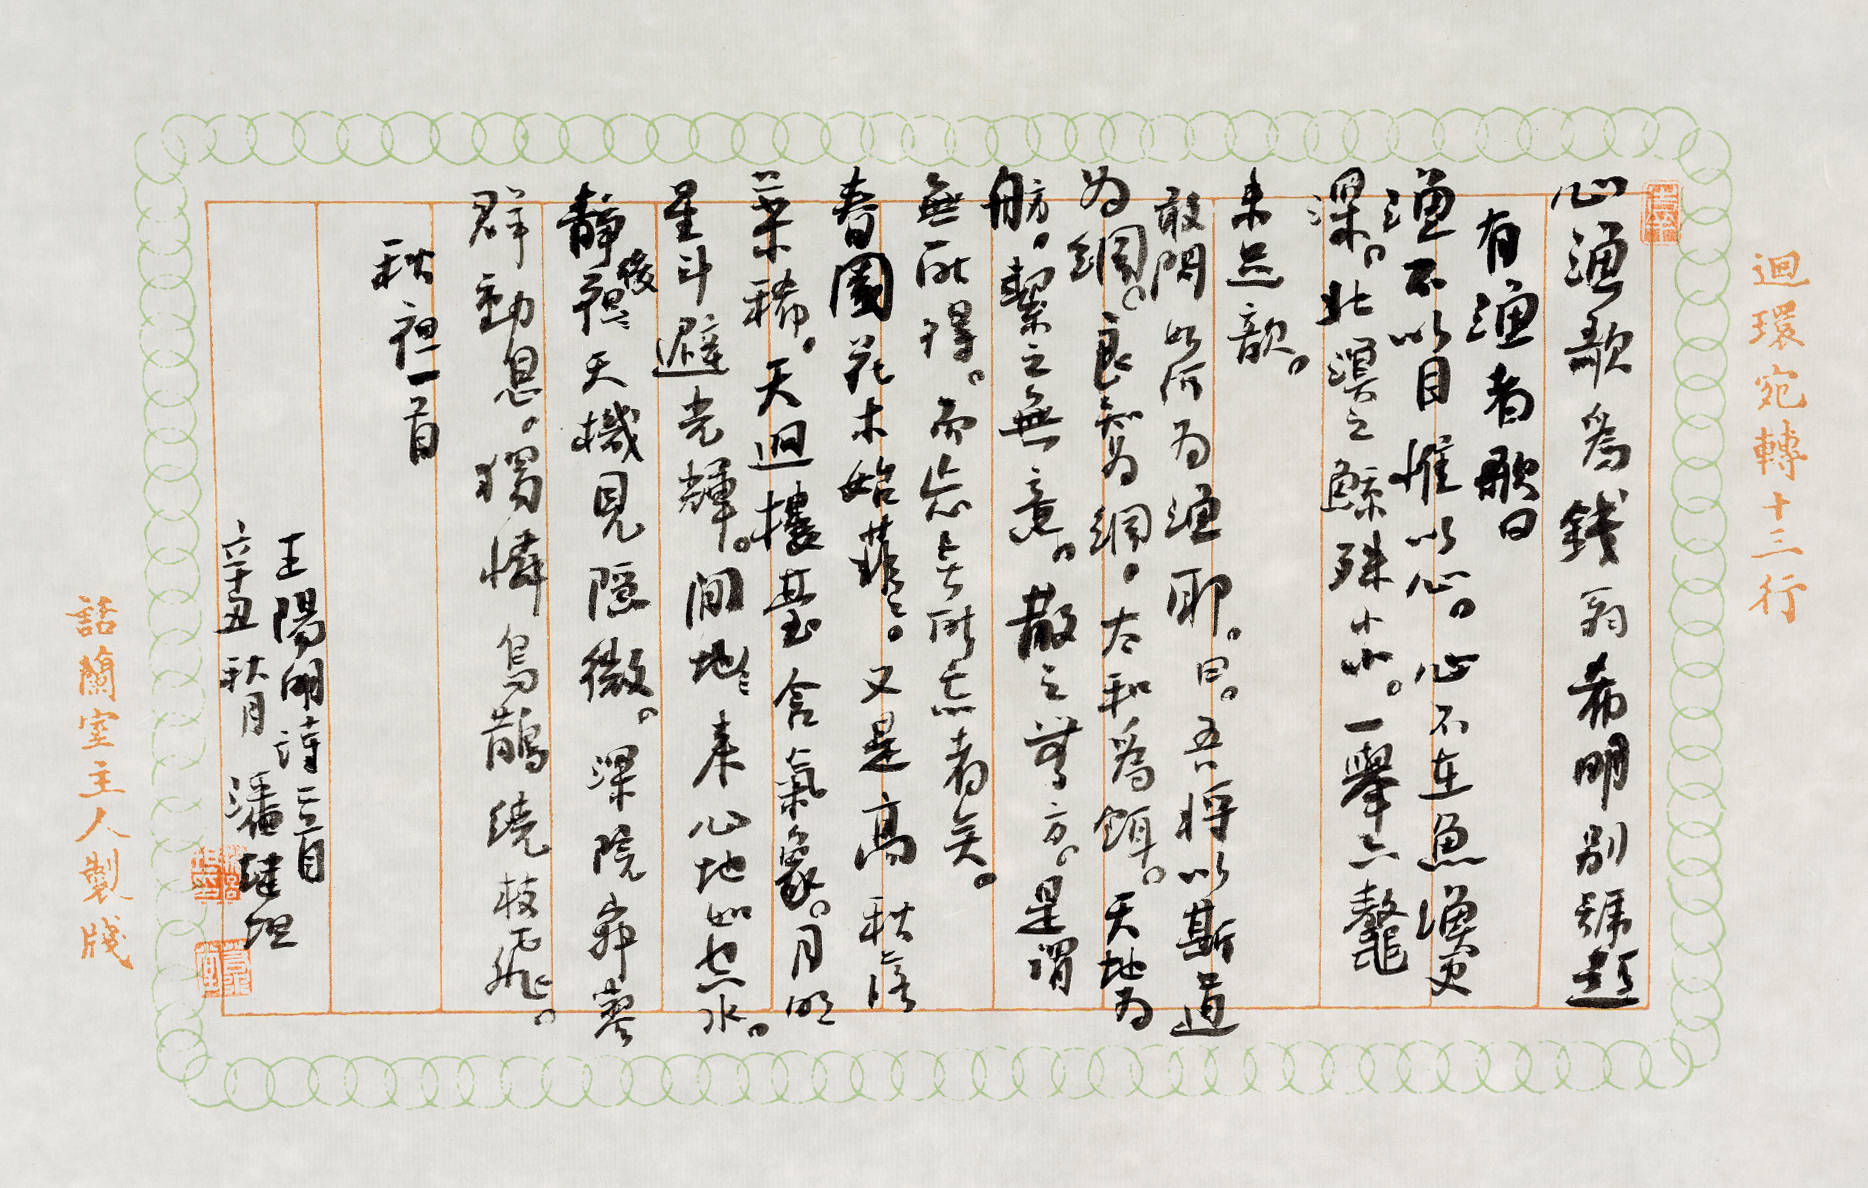 迴環宛轉十三行
心漁歌為錢翁希明別號題
有漁者歌曰
漁不以目惟以心。心不在魚漁更
深。北溟之鯨殊小小。一舉六鼇
未足歆。
敢問如何為漁耶。曰。吾將以斯道
為網。良知為綱。太和為餌。天地為
舫。絜之無意。散之無方。是謂
無所得。而忘無所忘者矣。
春園花木始菲菲。又是高秋落
葉稀。天迥樓臺含氣象。月明
星斗避光輝。閒來心地如空水。
靜後天機見隱微。深院寂寥
群動息。獨憐烏鵲繞枝飛。
秋 一首
王陽明詩 首
辛丑秋月 潘
話蘭室主人製牋